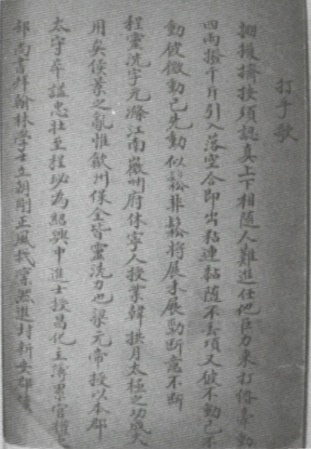 打手歌
掤握擠捘須認真上下相隨人難進任他巨力來打俗牽動
四兩撥千斤引入落空合即出粘連黏隨不丟項又彼不動己不
動彼微動己先動似鬆非鬆將展未展動斷意不斷
程靈洗字元滌江南徽州府休寧人授業韓拱月太極之功成大
用矣侯景之亂惟歙州保全皆靈洗力也梁元帝授以本郡
太守卒諡忠壯至程珌為紹興中進士授昌化主簿累官權吏
部尚書拜翰林學士立朝剛正風裁凜然進封新安郡侯